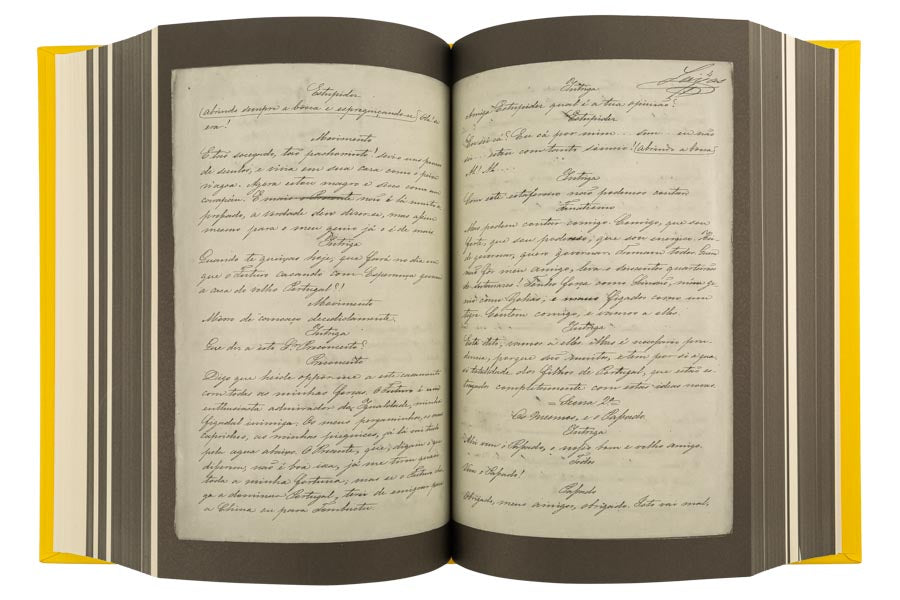 Estupidez
(abrindo sempre a boca e espreguiçando-se) Olá! a
eva!
Movimento
Estás socegado, tão pachorrento! Servi uma porção
de seculos, e vivia em sua casa como o peixe
n'agoa. Agora estou magro e secco como um
carapau. E mais o Presente não é lá muito a-
pressado, a verdade deve dizer-se, mas assim
mesmo para o meu genio já o é de mais
Intriga
Quando te queixas hoje, que fará no dia em
que o Futuro casando com Esperança governe
a casa do velho Portugal?!
Movimento
Morro de cansaço decididamente.
Intriga
Que diz a isto Sr. Preconceito?
Preconceito
Digo que heide oppor-me a este casamento
com todas as minhas forças. O Futuro é um
enthusiasta admirador da Igualdade, minha
figadal inimiga. Os meus pergaminhos, os meus
caprichos, as minhas preguiças, já lá vai tudo
pela agua abaixo. O Presente, que, digam o que
disserem, não é boa isca, já me tem quasi
toda a minha fortuna; mas se o Futuro che-
ga a dominar Portugal, terei de emigrar para
a China ou para Tombuctu.
Intriga
Amiga Estupidez qual é a tua opinião?
Estupidez
Eu sei cá? Eu cá por mim... sim... eu não
sei... estou com tanto somno! (abrindo a boca)
Ah! Ah...
Intriga
Com este estafermo não podemos contar
Fanatismo
Mas podem contar comigo. Comigo, que sou
forte, que sou poderoso, que sou energico.
governar, quero governar. Tomam todos. Quem
não for meu amigo, leva o descanto quarteirão
Tenho força como Sansão, ge-
nio como Golias; e meus figados como um
tigre. Contem comigo, e vamos a elles.
Intriga
Está dito; vamos a elles. Mas é necessario pru-
dencia, porque são muitos, e tem por si a qua-
si totalidade dos filhos de Portugal, que estão es-
tragados completamente com estas ideias novas.
= Scena 2ª =
Os Mesmos, e o Papado.
Intriga
Ahi vem o Papado, o nosso bom e velho amigo.
Todos
Viva o Papado!
Papado
Obrigado, meus amigos, obrigado. Isto vai mal,